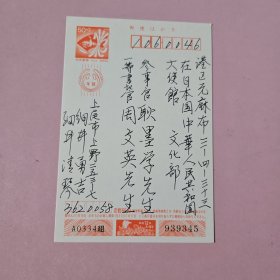 郵便はがき
106-0046
港区元麻布三-四-三十三
在日本国中華人民共和国
大使館 文化部
参事官 耿墨学先生
一等書記官 周文英先生
上尾市上野一五三-七
細井嘉吉
細井清琴
362-0058
A0334組
939345